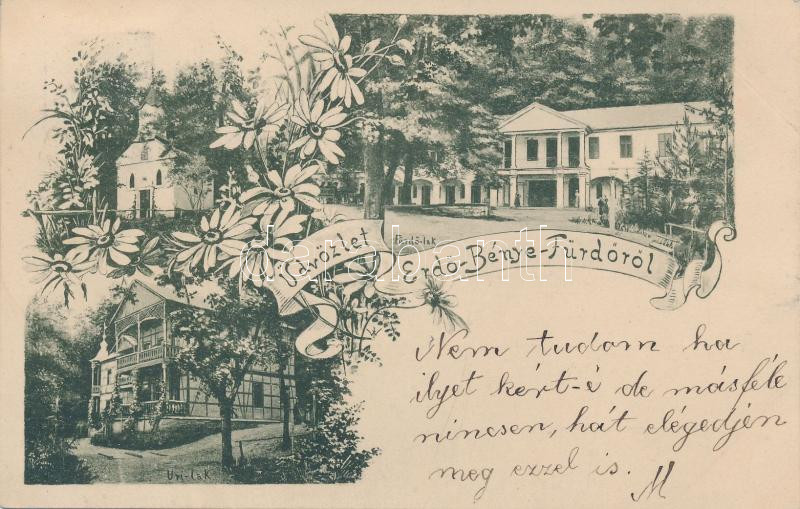 Üdvözlet
Fürdő-lak
Erdő-Bénye-Fürdőről
darabanth
Uri-lak
Nem tudom ha
ilyet kért-é de másféle
nincsen, hát elégedjén
meg ezzel is.
M